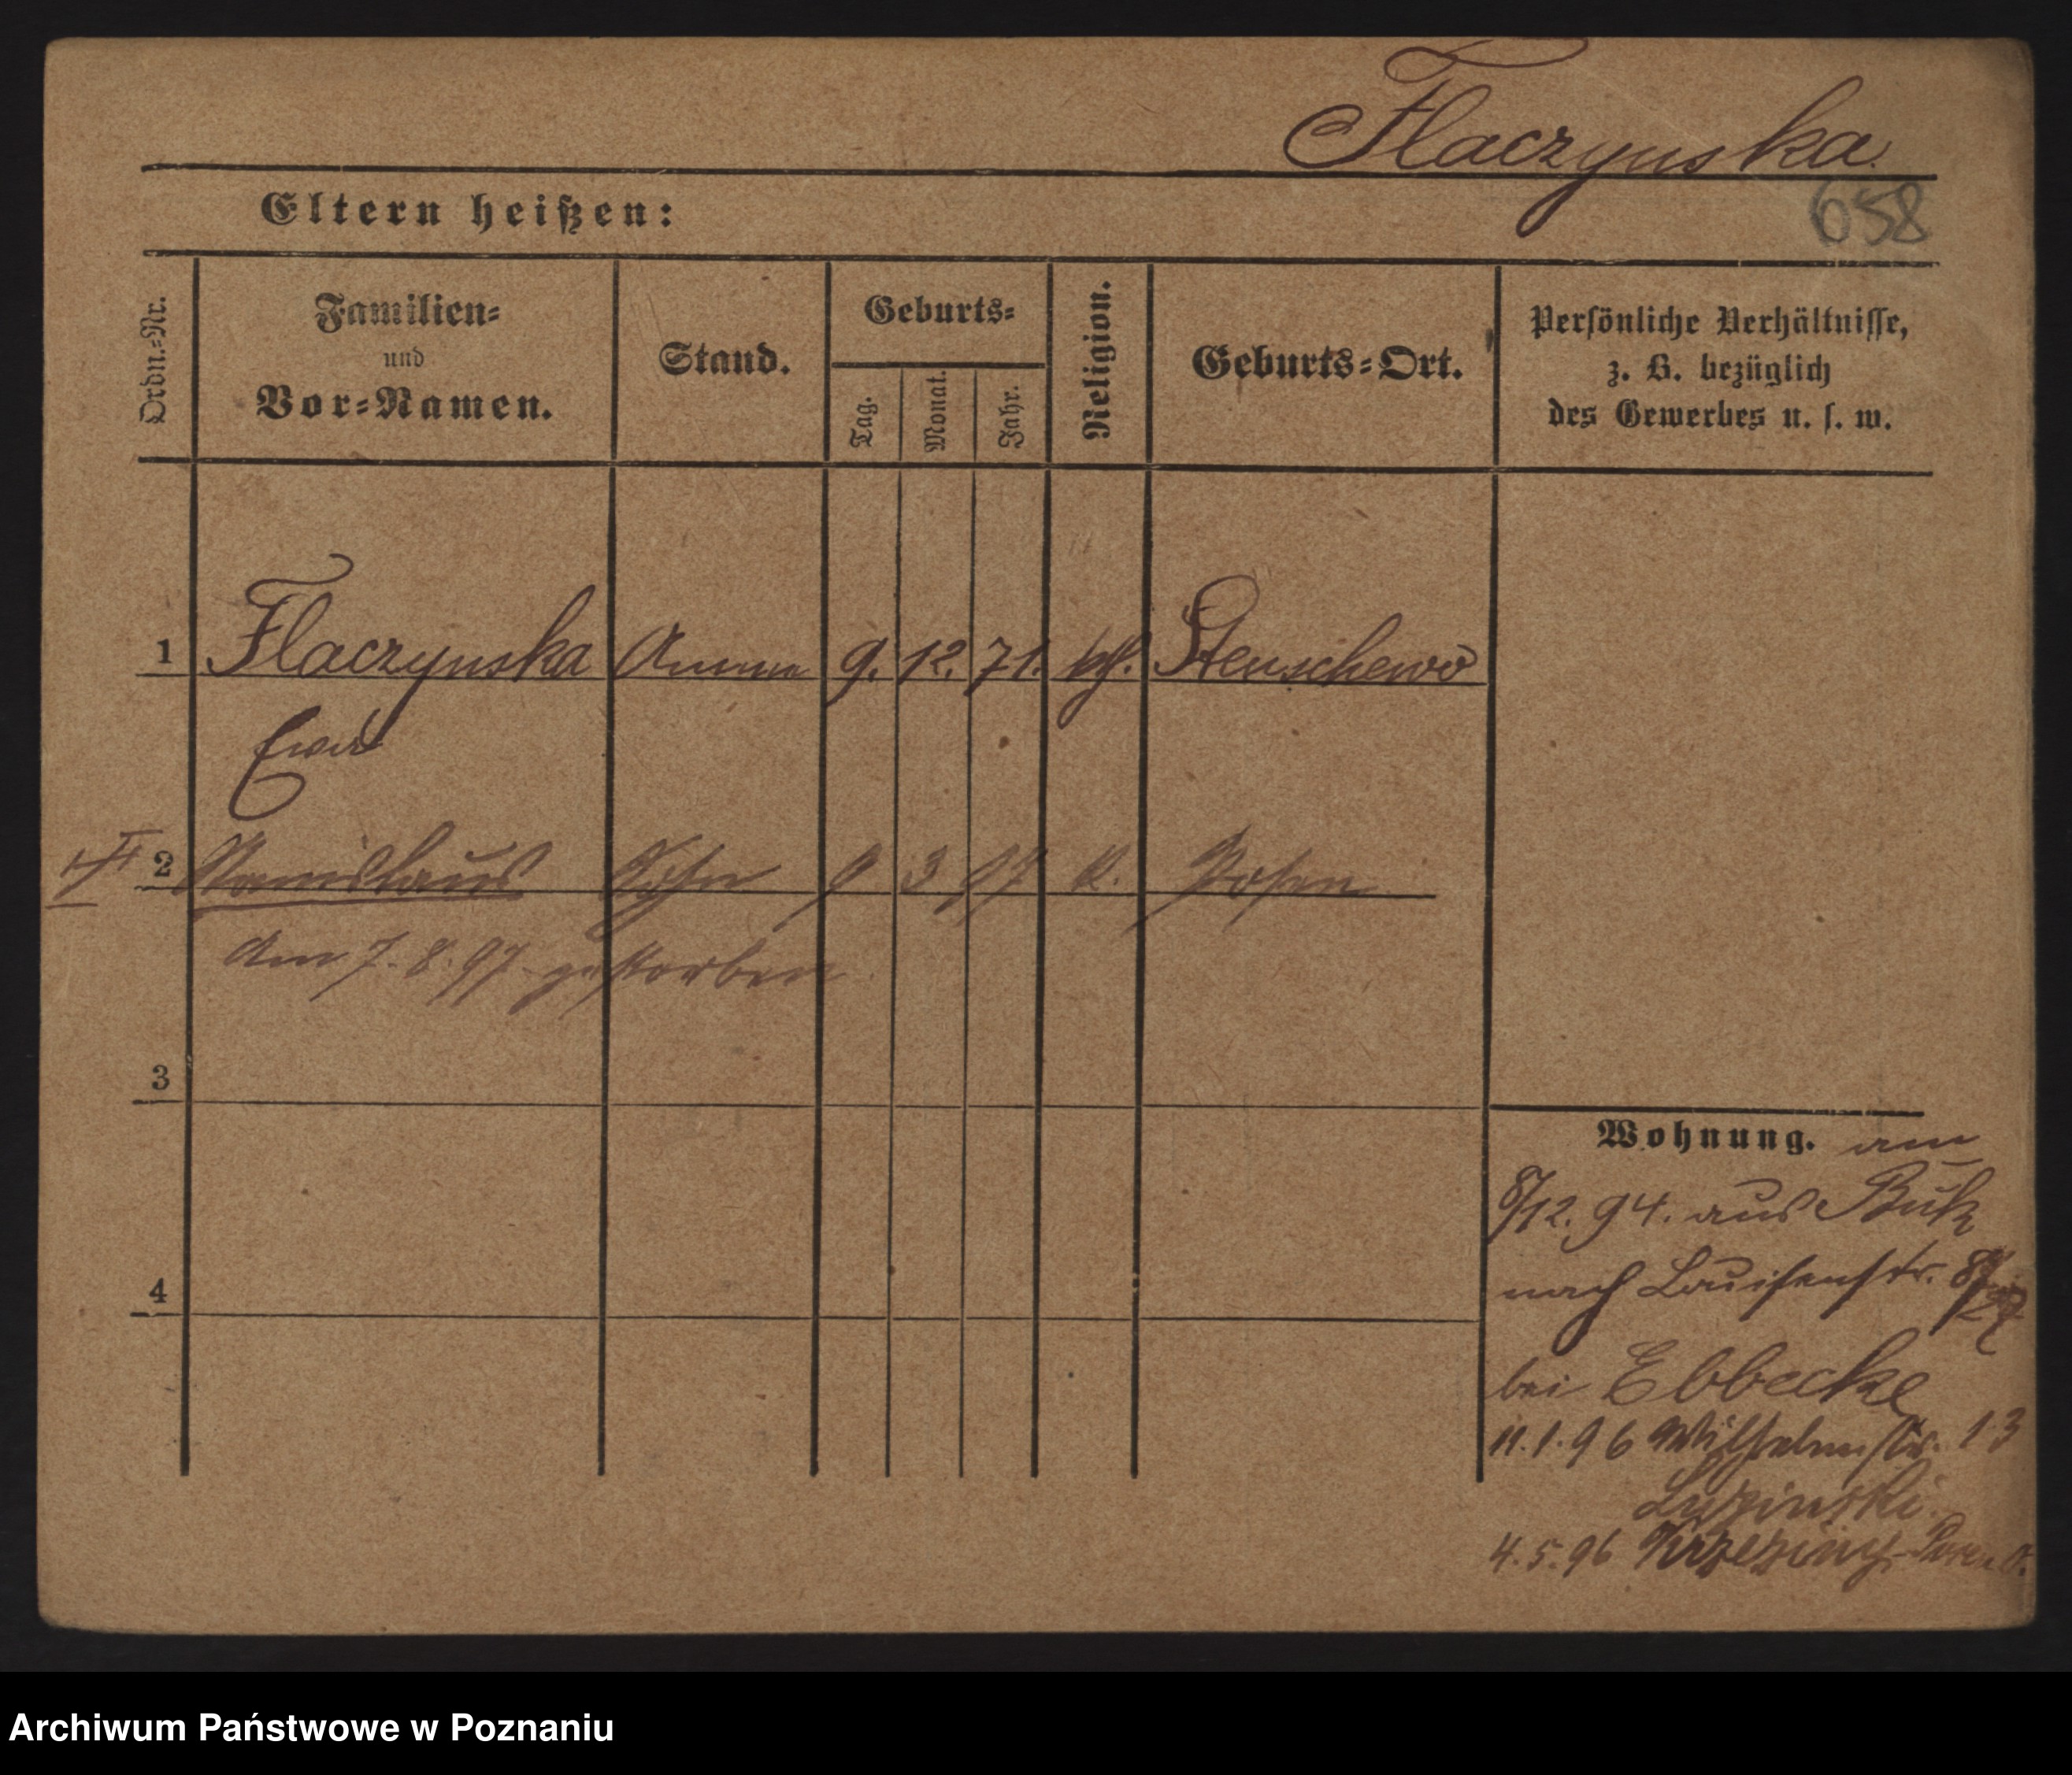 Flaczynska.
658
Eltern heißen:
Ordn.=Nr.
Familien=
und
Vor=Namen.
Stand.
Geburts=
Tag.
Monat.
Jahr.
Religion.
Geburts=Ort.
Persönliche Verhältnisse,
z. B. bezüglich
des Gewerbes u. s. w.
1 Flaczynska Amme 9. 12. 71. kth. Stenschewo
Ewa
2 Stanislaus Sohn 9 3 97 k. Posen
Am 7. 8. 97. gestorben
3
4
Wohnung. am
8/12. 94. aus Buk
nach Louisenstr.
bei Ebbecke
11.1.96 Wilhelmstr. 13
4.5.96
Archiwum Państwowe w Poznaniu